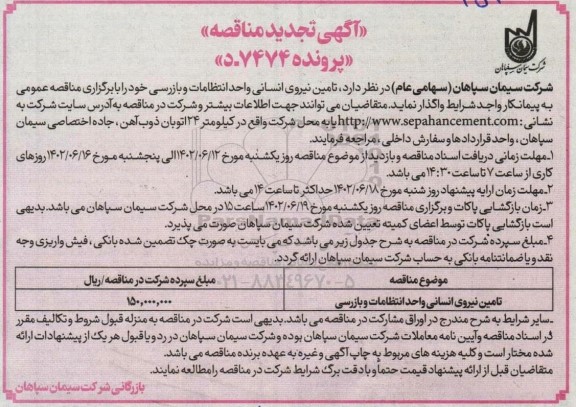 «آگهی تجدید مناقصه»
«پرونده ۷۴۷۴-د»
شرکت سیمان سپاهان
شرکت سیمان سپاهان (سهامی عام) در نظر دارد، تامین نیروی انسانی واحد انتظامات و بازرسی خود را با برگزاری مناقصه عمومی
به پیمانکار واجد شرایط واگذار نماید. متقاضیان می توانند جهت اطلاعات بیشتر و شرکت در مناقصه به آدرس سایت شرکت به
نشانی: http://www.sepahancement.com یا به محل شرکت واقع در کیلومتر ۲۴ اتوبان ذوب آهن، جاده اختصاصی سیمان
سپاهان، واحد قراردادها و سفارش داخلی، مراجعه فرمایند.
۱ـ مهلت زمانی دریافت اسناد مناقصه و بازدید از موضوع مناقصه روز یکشنبه مورخ ۱۴۰۲/۰۶/۱۲ الی پنجشنبه مورخ ۱۴۰۲/۰۶/۱۶ روزهای
کاری از ساعت ۷ تا ساعت ۱۴:۳۰ می باشد.
۲ـ مهلت زمان ارایه پیشنهاد روز شنبه مورخ ۱۴۰۲/۰۶/۱۸ حداکثر تا ساعت ۱۴ می باشد.
۳ـ زمان بازگشایی پاکات و برگزاری مناقصه روز یکشنبه مورخ ۱۴۰۲/۰۶/۱۹ ساعت ۱۵ در محل شرکت سیمان سپاهان می باشد. بدیهی
است بازگشایی پاکات توسط اعضای کمیته تعیین شده شرکت سیمان سپاهان صورت می پذیرد.
۴ـ مبلغ سپرده شرکت در مناقصه به شرح جدول زیر می باشد که می بایست به صورت چک تضمین شده بانکی، فیش واریزی وجه
نقد و یا ضمانتنامه بانکی به حساب شرکت سیمان سپاهان ارائه گردد.
موضوع مناقصه مبلغ سپرده شرکت در مناقصه/ریال
تامین نیروی انسانی واحد انتظامات و بازرسی ۱۵۰,۰۰۰,۰۰۰
ـ سایر شرایط به شرح مندرج در اوراق مشارکت در مناقصه می باشد. بدیهی است شرکت در مناقصه به منزله قبول شروط و تکالیف مقرر
در اسناد مناقصه و آیین نامه معاملات شرکت سیمان سپاهان بوده و شرکت سیمان سپاهان در رد و یا قبول هر یک از پیشنهادات ارائه
شده مختار است و کلیه هزینه های مربوط به چاپ آگهی و غیره به عهده برنده مناقصه می باشد.
متقاضیان قبل از ارائه پیشنهاد قیمت حتماً و با دقت برگ شرایط شرکت در مناقصه را مطالعه نمایند.
بازرگانی شرکت سیمان سپاهان
۰۲۱-۸۸۳۴۹۶۷۰-۵